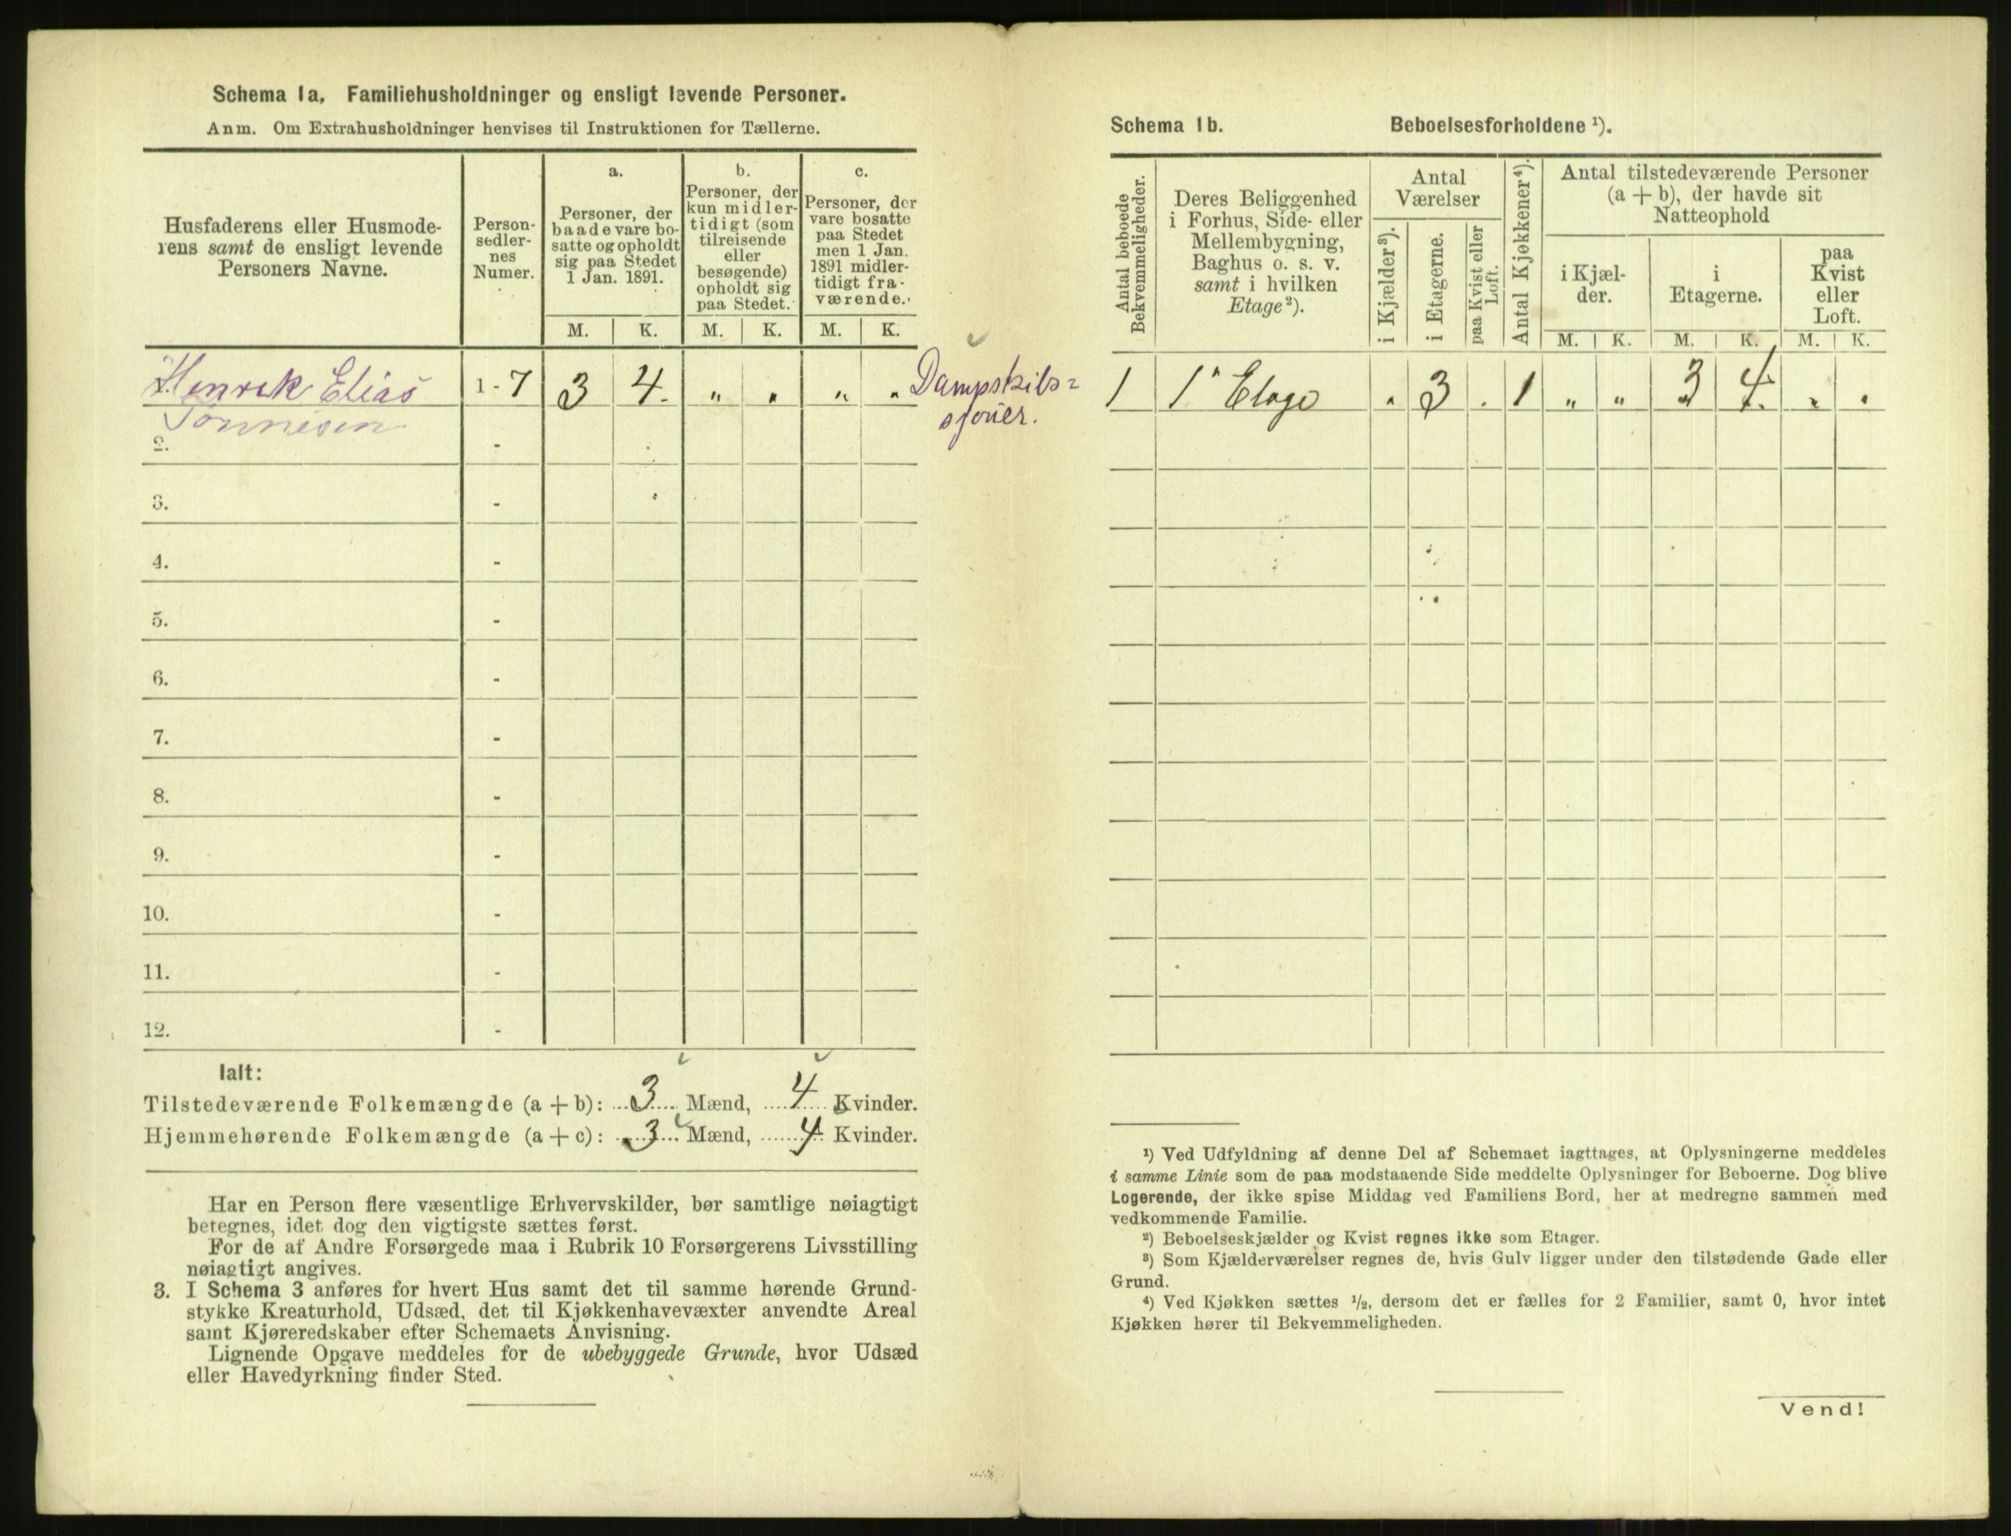 Schema 1a. Familiehusholdninger og ensligt levende Personer.
Anm. Om Extrahusholdninger henvises til Instruktionen for Tællerne.
Husfaderens eller Husmode-
rens samt de ensligt levende
Personers Navne.
Person-
sedler-
nes
Numer.
a.
Personer, der
baade vare bo-
satte og opholdt
sig paa Stedet
1 Jan. 1891.
b.
Personer, der
kun midler-
tidigt (som
tilreisende
eller
besøgende)
opholdt sig
paa Stedet.
c.
Personer, der
vare bosatte
paa Stedet
men 1 Jan.
1891 midler-
tidigt fra-
værende.
M. K. M. K. M. K.
1. Henrik Elias 1 - 7 3 4. „ „ „ „ Dampskibs=
Tønnesen sjøuer.
2. -
3. -
4. -
5. -
6. -
7. -
8. -
9. -
10. -
11. -
12. -
Ialt:
Tilstedeværende Folkemængde (a + b): 3 Mænd, 4 Kvinder.
Hjemmehørende Folkemængde (a + c): 3 Mænd, 4 Kvinder.
Har en Person flere væsentlige Erhvervskilder, bør samtlige nøiagtigt
betegnes, idet dog den vigtigste sættes først.
For de af Andre Forsørgede maa i Rubrik 10 Forsørgerens Livsstilling
nøiagtigt angives.
3. I Schema 3 anføres for hvert Hus samt det til samme hørende Grund-
stykke Kreaturhold, Udsæd, det til Kjøkkenhavevæxter anvendte Areal
samt Kjøreredskaber efter Schemaets Anvisning.
Lignende Opgave meddeles for de ubebyggede Grunde, hvor Udsæd
eller Havedyrkning finder Sted.
Schema 1b. Beboelsesforholdene ¹).
Antal beboede
Bekvemmeligheder.
Deres Beliggenhed
i Forhus, Side- eller
Mellembygning,
Baghus o. s. v.
samt i hvilken
Etage²).
Antal
Værelser
i Kjælder³).
i Etagerne.
paa Kvist eller
Loft.
Antal Kjøkkener⁴).
Antal tilstedeværende Personer
(a + b), der havde sit
Natteophold
i Kjæl-
der.
i
Etagerne.
paa
Kvist
eller
Loft.
M. K. M. K. M. K.
1 1" Etage . 3 . 1 „ „ 3 4. „ .
¹) Ved Udfyldning af denne Del af Schemaet iagttages, at Oplysningerne meddeles
i samme Linie som de paa modstaaende Side meddelte Oplysninger for Beboerne. Dog blive
Logerende, der ikke spise Middag ved Familiens Bord, her at medregne sammen med
vedkommende Familie.
²) Beboelseskjælder og Kvist regnes ikke som Etager.
³) Som Kjælderværelser regnes de, hvis Gulv ligger under den tilstødende Gade eller
Grund.
⁴) Ved Kjøkken sættes ½, dersom det er fælles for 2 Familier, samt 0, hvor intet
Kjøkken hører til Bekvemmeligheden.
Vend!